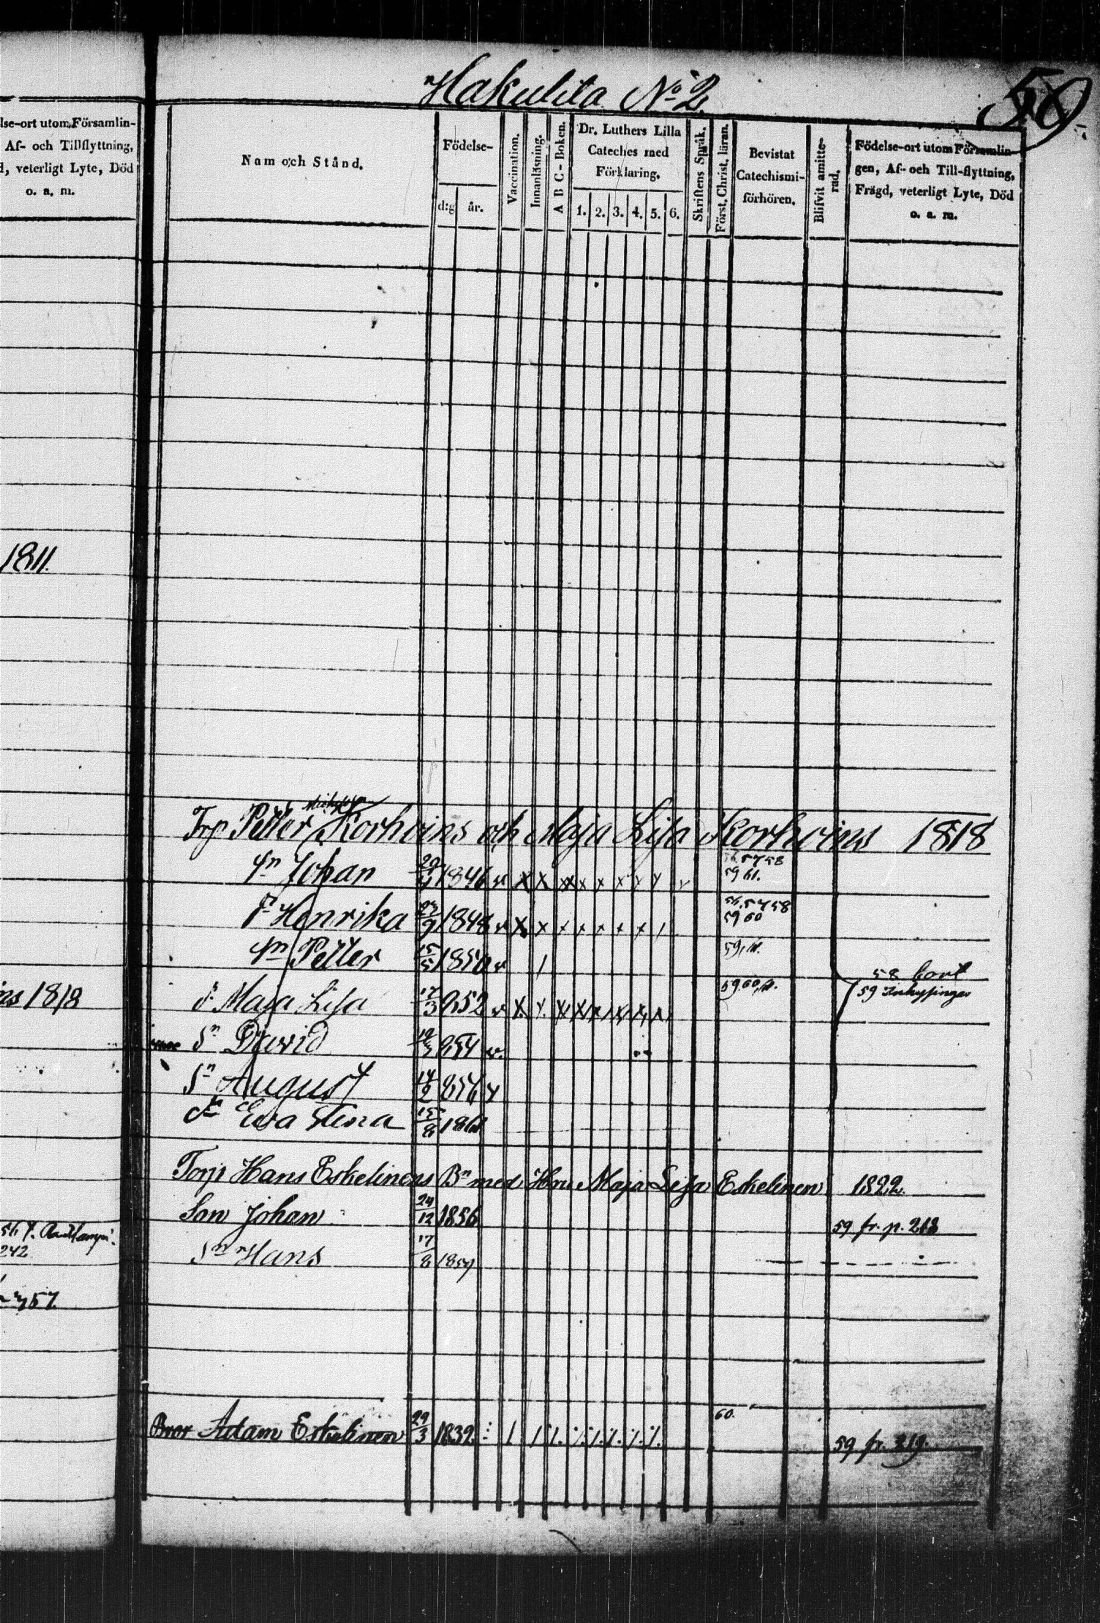 Hakulita No 2
lse-ort utom Församlin-
Af- och Tillflyttning,
d, veterligt Lyte, Död
o. a. m.
Namn och Stånd.
Födelse-
d:g
år.
Vaccination.
Innanläsning.
A B C-Boken.
Dr. Luthers Lilla
Cateches med
Förklaring.
1. 2. 3. 4. 5. 6.
Skriftens Språk.
Först. Christ. läran.
Bevistat
Catechismi-
förhören.
Blifvit amitte-
rad.
Födelse-ort utom Församlin-
gen, Af- och Till-flyttning,
Frägd, veterligt Lyte, Död
o. a. m.
1811.
Torp Petter Korhoins och Maja Lisa Korhoins 1818
Sn Johan 1846 v x x x x x x x x 57 58
59 61.
Henrika 1848 v x x x x x x x 57 58
59 60
Sn Petter 15/5 1850 v 1 59,
ns 1818
d. Maja Lisa 17/3 852 v x x x x x x x 59 60, 58 bort
59
Sn David 854 v.
Sn August 14/2 856 v
Ewa Stina 15/8 186
Torp Hans Eskelinens Bn med Hu. Maja Lisa Eskelinen 1822
Son Johan 24/12 1856 59 fr. p. 213
242
Sn Hans 17/8 1859
57
Bror Adam Eskelinen 29/3 1839 60. 59 fr. 219.